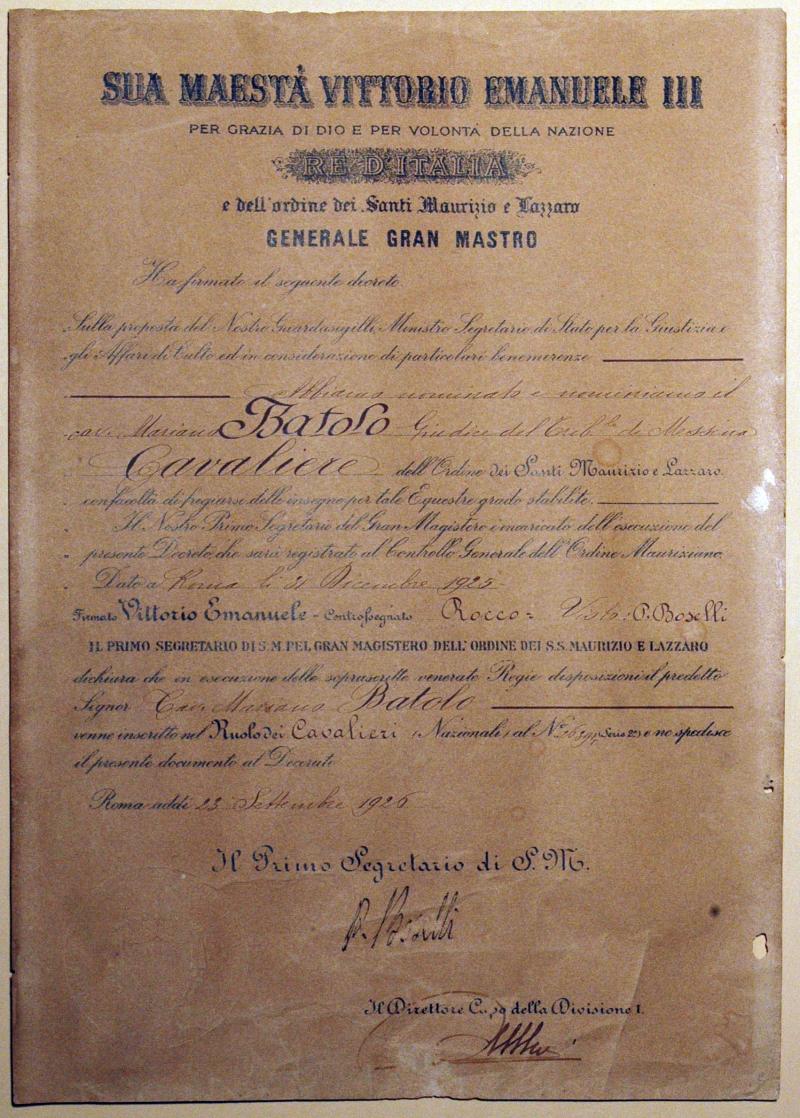 SUA MAESTÀ VITTORIO EMANUELE III
PER GRAZIA DI DIO E PER VOLONTÀ DELLA NAZIONE
RE D'ITALIA
e dell'ordine dei Santi Maurizio e Lazzaro
GENERALE GRAN MASTRO
Ha firmato il seguente decreto
Sulla proposta del Nostro Guardasigilli, Ministro Segretario di Stato per la Giustizia e
gli Affari di Culto ed in considerazione di particolari benemerenze
Abbiamo nominato e nominiamo il
cav. Mariano Batolo Giudice del Trib.le di Messina
Cavaliere dell'Ordine dei Santi Maurizio e Lazzaro.
con facoltà di fregiarsi delle insegne per tale Equestre grado stabilite.
Il Nostro Primo Segretario del Gran Magistero è incaricato dell'esecuzione del
presente Decreto che sarà registrato al Controllo Generale dell'Ordine Mauriziano
Dato a Roma li 31 Dicembre 1925
Firmato Vittorio Emanuele - Controssegnato Rocco = Visto: P. Boselli
IL PRIMO SEGRETARIO DI S. M. PEL GRAN MAGISTERO DELL'ORDINE DEI S.S. MAURIZIO E LAZZARO
dichiara che in esecuzione delle soprascritte venerate Regie disposizioni il predetto
Signor Cav. Mariano Batolo
venne inscritto nel Ruolo dei Cavalieri (Nazionali) al N° (Serie 2ª) e ne spedisce
il presente documento al Decorato
Roma addì 23 Settembre 1926
Il Primo Segretario di S. M.
P. Boselli
Il Direttore Capo della Divisione 1.